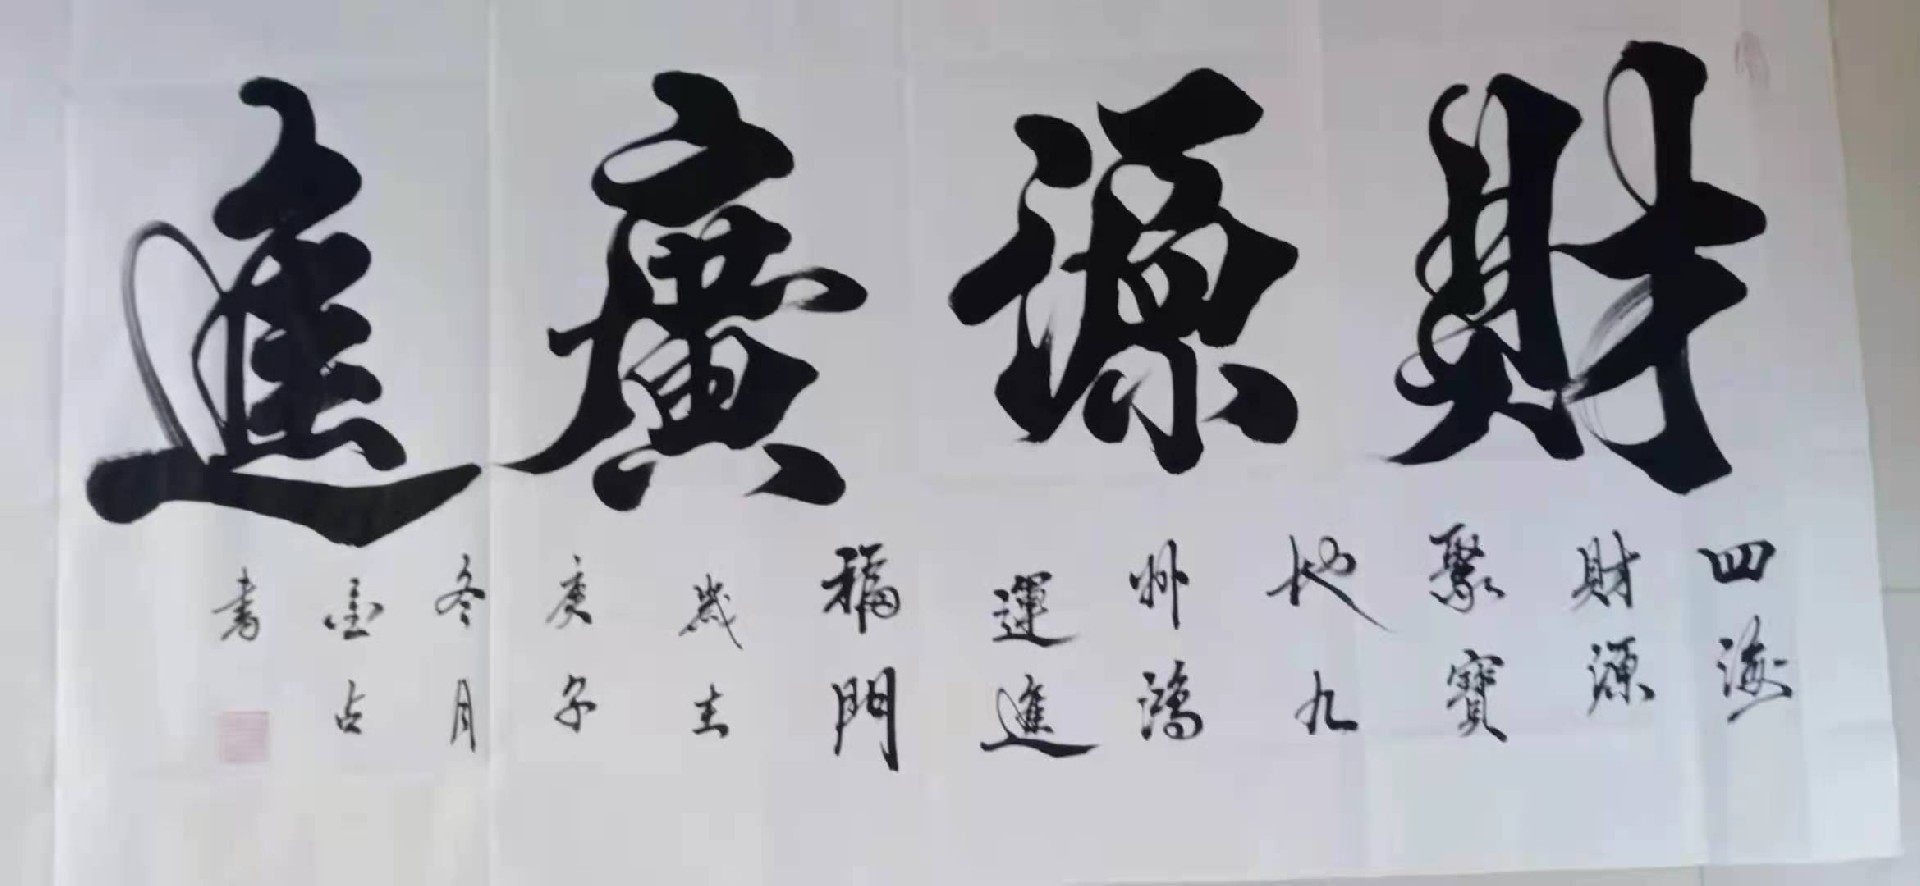 財源廣進
四海
財源
聚寶
地九
州鴻
運進
福門
歲在
庚子
冬月
金占
書